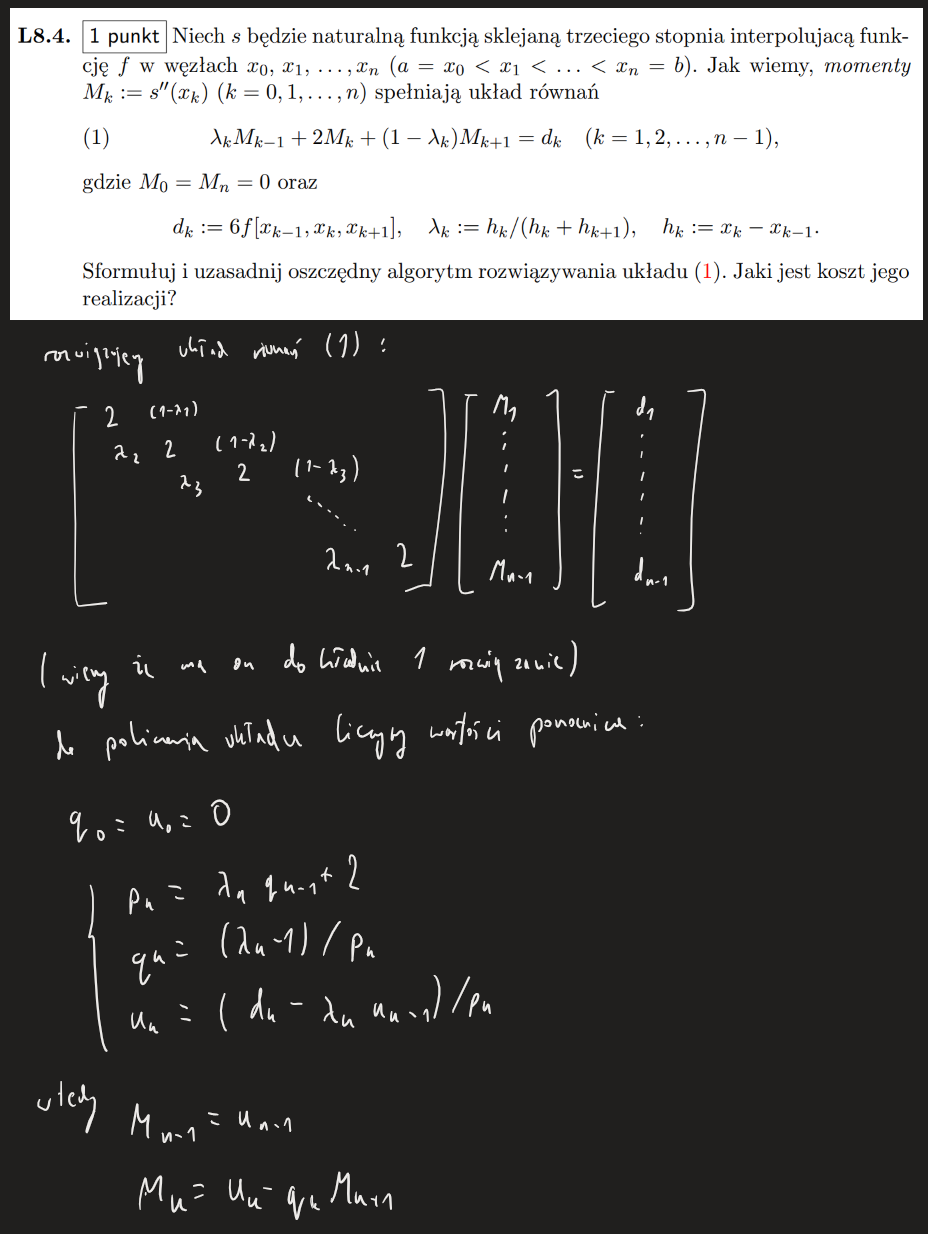 L8.4. 1 punkt Niech s będzie naturalną funkcją sklejaną trzeciego stopnia interpolujacą funk-
cję f w węzłach x₀, x₁, ..., xₙ (a = x₀ < x₁ < ... < xₙ = b). Jak wiemy, momenty
Mₖ := s″(xₖ) (k = 0, 1, ..., n) spełniają układ równań
(1) λₖMₖ₋₁ + 2Mₖ + (1 − λₖ)Mₖ₊₁ = dₖ (k = 1, 2, ..., n − 1),
gdzie M₀ = Mₙ = 0 oraz
dₖ := 6f[xₖ₋₁, xₖ, xₖ₊₁], λₖ := hₖ/(hₖ + hₖ₊₁), hₖ := xₖ − xₖ₋₁.
Sformułuj i uzasadnij oszczędny algorytm rozwiązywania układu (1). Jaki jest koszt jego
realizacji?
rozwiązujey układ równań (1) :
2 (1-λ₁) M₁ d₁
λ₂ 2 (1-λ₂)
λ₃ 2 (1-λ₃) =
λₙ₋₁ 2 Mₙ₋₁ dₙ₋₁
(wiemy że ma on dokładnie 1 rozwiązanie)
do policzenia układu liczymy wartości pomocnicze:
q₀ = u₀ = 0
pₖ = λₖ qₖ₋₁ + 2
qₖ = (λₖ-1) / pₖ
uₖ = (dₖ - λₖ uₖ₋₁) / pₖ
wtedy
Mₙ₋₁ = uₙ₋₁
Mₖ = uₖ - qₖ Mₖ₊₁